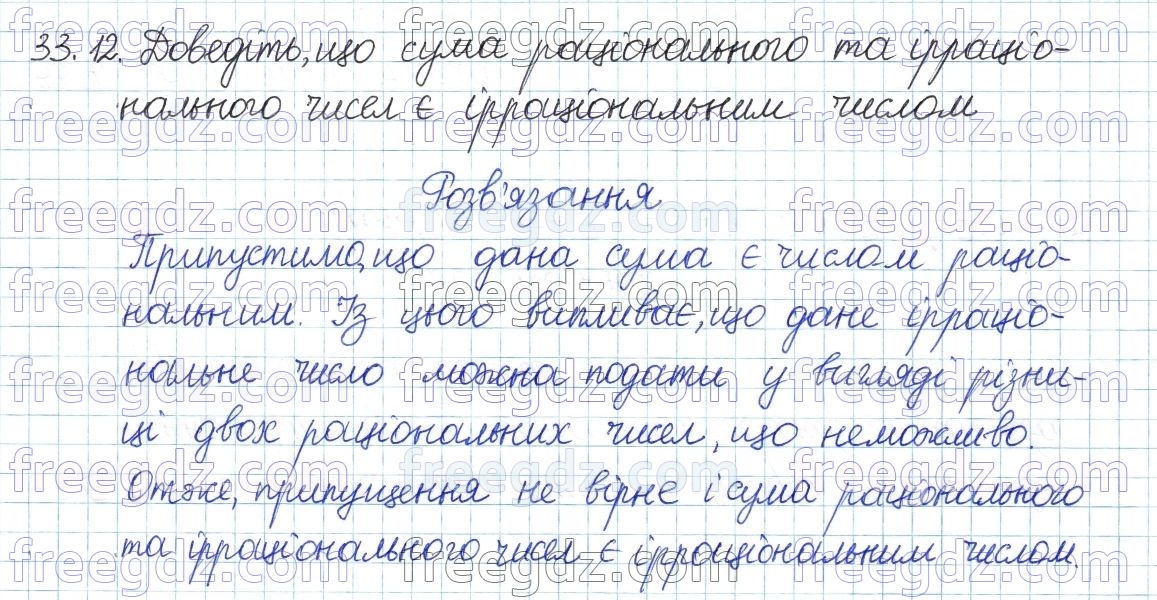 33.12. Доведіть, що сума раціонального та ірраціо-
нального чисел є ірраціональним числом
Розв'язання
Припустимо, що дана сума є числом раціо-
нальним. Із цього випливає, що дане ірраціо-
нальне число можна подати у вигляді різни-
ці двох раціональних чисел, що неможливо.
Отже, припущення не вірнє і сума раціонального
та ірраціонального чисел є ірраціональним числом.
freegdz.com